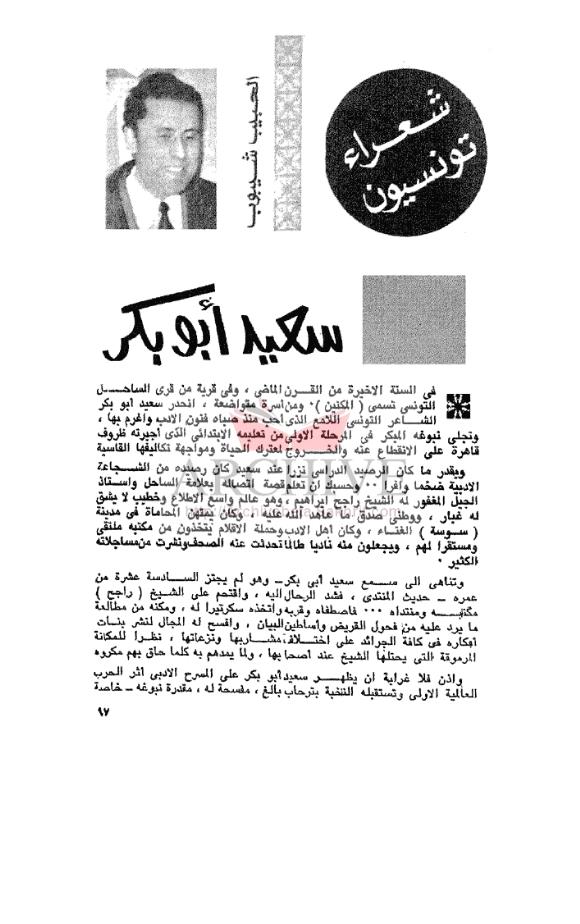 شعراء
تونسيون
الحبيب شيبوب
سعيد أبو بكر
في السنة الاخيرة من القرن الماضي ، وفي قرية من قرى الساحل
التونسي تسمى ( المكنين ) ٠ ومن اسرة متواضعة ، انحدر سعيد ابو بكر
الشاعر التونسي اللامع الذي احب منذ صباه فنون الادب واغرم بها ،
وتجلى نبوغه المبكر في المرحلة الاولى من تعليمه الابتدائي الذي اجبرته ظروف
قاهرة على الانقطاع عنه والخروج لمعترك الحياة ومواجهة تكاليفها القاسية
ويقدر ما كان الرصيد الدراسي نزرا عند سعيد كان رصيده من الشجاعة
الادبية ضخما وافرا ٠٠ وحسبك ان تعلم قصة اتصاله بعلامة الساحل واستاذ
الجيل المغفور له الشيخ راجح ابراهيم ، وهو عالم واسع الاطلاع وخطيب لا يشق
له غبار ، ووطني صدق ما عاهد الله عليه ، وكان يمتهن المحاماة في مدينة
( سوسة ) الغناء ، وكان اهل الادب وحملة الاقلام يتخذون من مكتبه ملتقى
ومستقرا لهم ، ويجعلون منه ناديا طالما تحدثت عنه الصحف ونشرت من مساجلاته
الكثير ٠
وتناهى الى سمع سعيد ابي بكر – وهو لم يجتز السادسة عشرة من
عمره – حديث المنتدى ، فشد الرحال اليه ، واقتحم على الشيخ ( راجح )
مكتبه ومنتداه ٠٠٠ فاصطفاه وقربه واتخذه سكرتيرا له ، ومكنه من مطالعة
ما يرد عليه من فحول القريض واساطين البيان ، وافسح له المجال لنشر بنات
افكاره في كافة الجرائد على اختلاف مشاربها ونزعاتها ، نظرا للمكانة
المرموقة التي يحتلها الشيخ عند اصحابها ، ولما يمدهم به كلما حاق بهم مكروه
واذن فلا غرابة ان يظهر سعيد ابو بكر على المسرح الادبي اثر الحرب
العالمية الاولى وتستقبله النخبة بترحاب بالغ ، مفسحة له ، مقدرة نبوغه – خاصة
٩٧
ARCHIVE